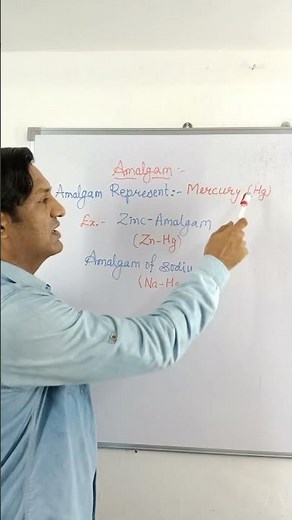 Amalgam :-
Amalgam Represent:- Mercury (Hg)
Ex.- Zinc-Amalgam
(Zn-Hg)
Amalgam of
(Na-Hg